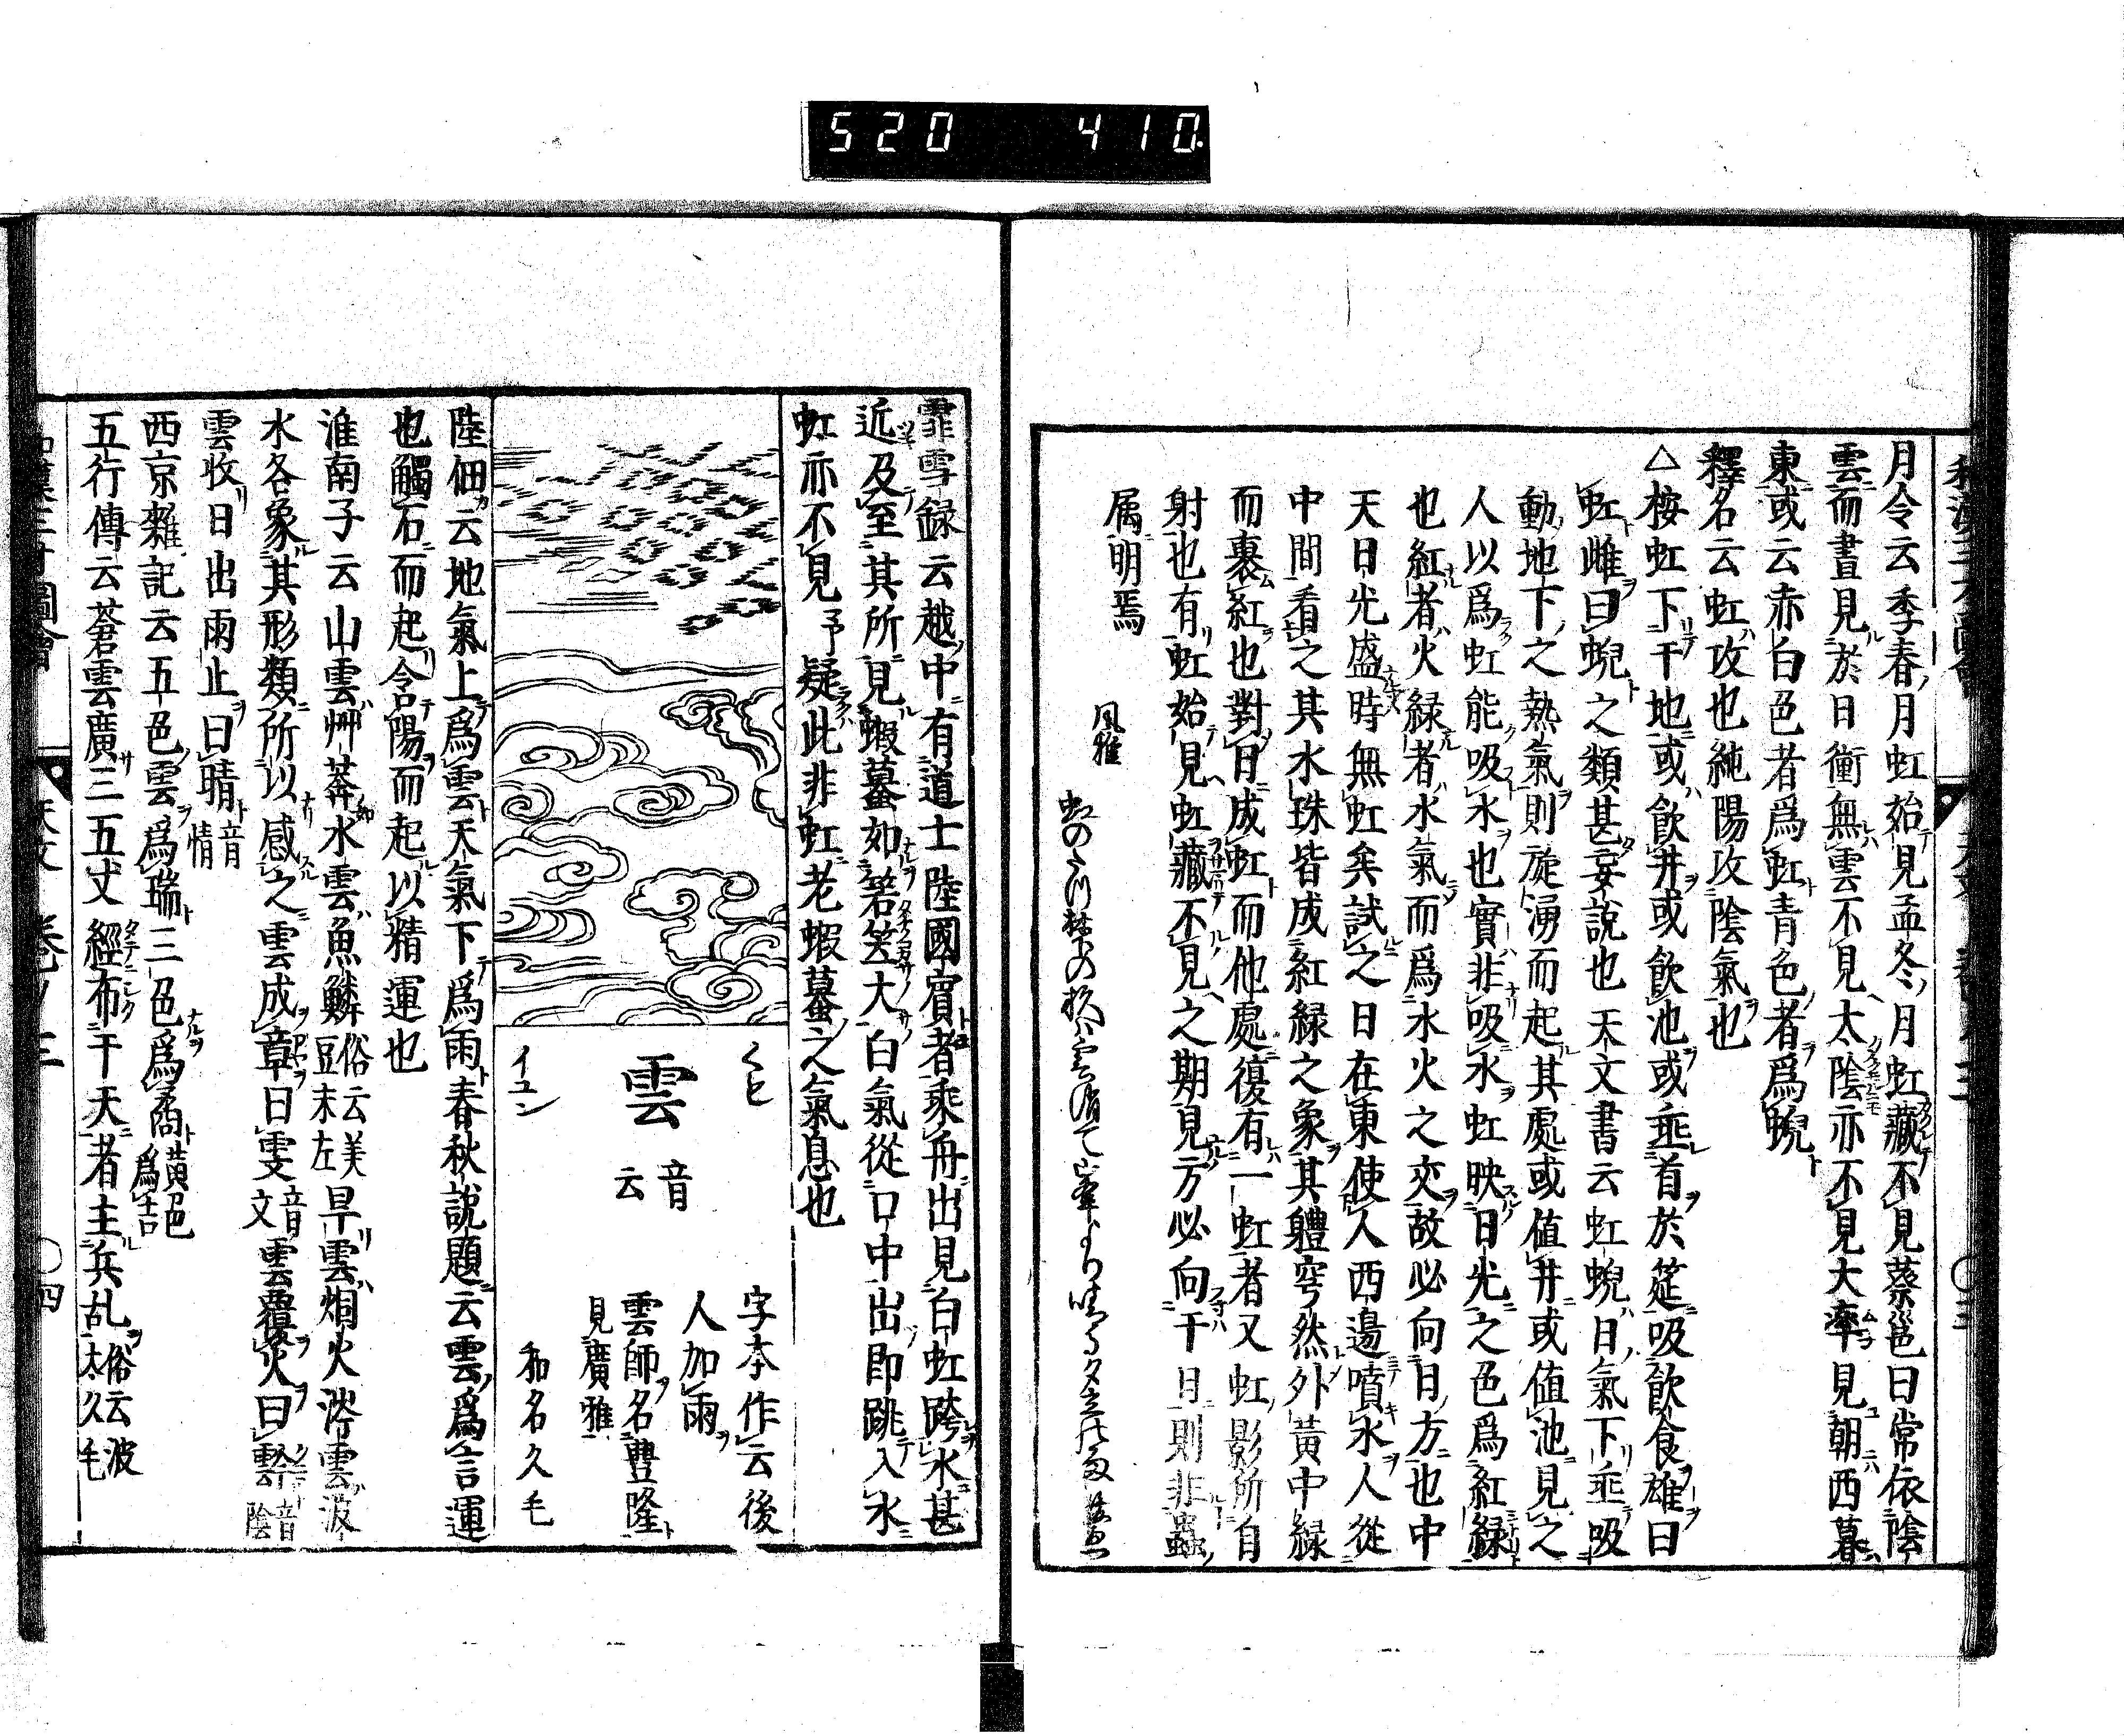 520 410
月令云季春月虹始見孟冬月虹藏不見蔡邕曰常依陰
雲而晝見於日衝無雲不見太陰亦不見大率見朝西暮
東或云赤白色者爲虹青色者爲蜺
釋名云虹攻也純陽攻陰氣也
△桉虹下干地或飮井或飮池或垂首於筵吸飮食雄曰
虹雌曰蜺之類甚妄說也天文書云虹蜺日氣下垂吸
動地下之熱氣則旋湧而起其處或值井或値池見之
人以爲虹能吸水也實非吸水虹映日光之色爲紅緑
也紅者火緑者水氣而爲水火之交故必向日方也中
天日光盛時無虹矣試之日在東使人西邊噴水人從
中間看之其水珠皆成紅緑之象其軆穹然外黃中緑
而裏紅也對日成虹而他處復有一虹者又虹影所自
射也有虹始見虹藏不見之期見方必向干日則非蟲
属明焉
風雅
天文
霏雪録云越中有道士陸國賓者乘舟出見白虹跨水甚
近及至其所見蝦蟇如箬笠大白氣從口中出即跳入水
虹亦不見予疑此非虹老蝦蟇之氣息也
くも
雲
音云
イユン
字本作云後
人加雨
雲師名豐隆
見廣雅
和名久毛
陸佃云地氣上爲雲天氣下爲雨春秋說題云雲爲言運
也觸石而起含陽而起以精運也
淮南子云山雲艸莽水雲魚鱗俗云美豆末左旱雲烟火涔雲波
水各象其形類所以感之雲成章曰雯音文雲覆火曰𩃬音陰
雲收日出雨止曰晴音情
西京雜記云五色雲爲瑞三色爲矞黃色爲吉
五行傳云蒼雲廣三五丈經布干天者主兵乱俗云波太久毛
和漢三才圖會
天文 卷ノ三
〇四